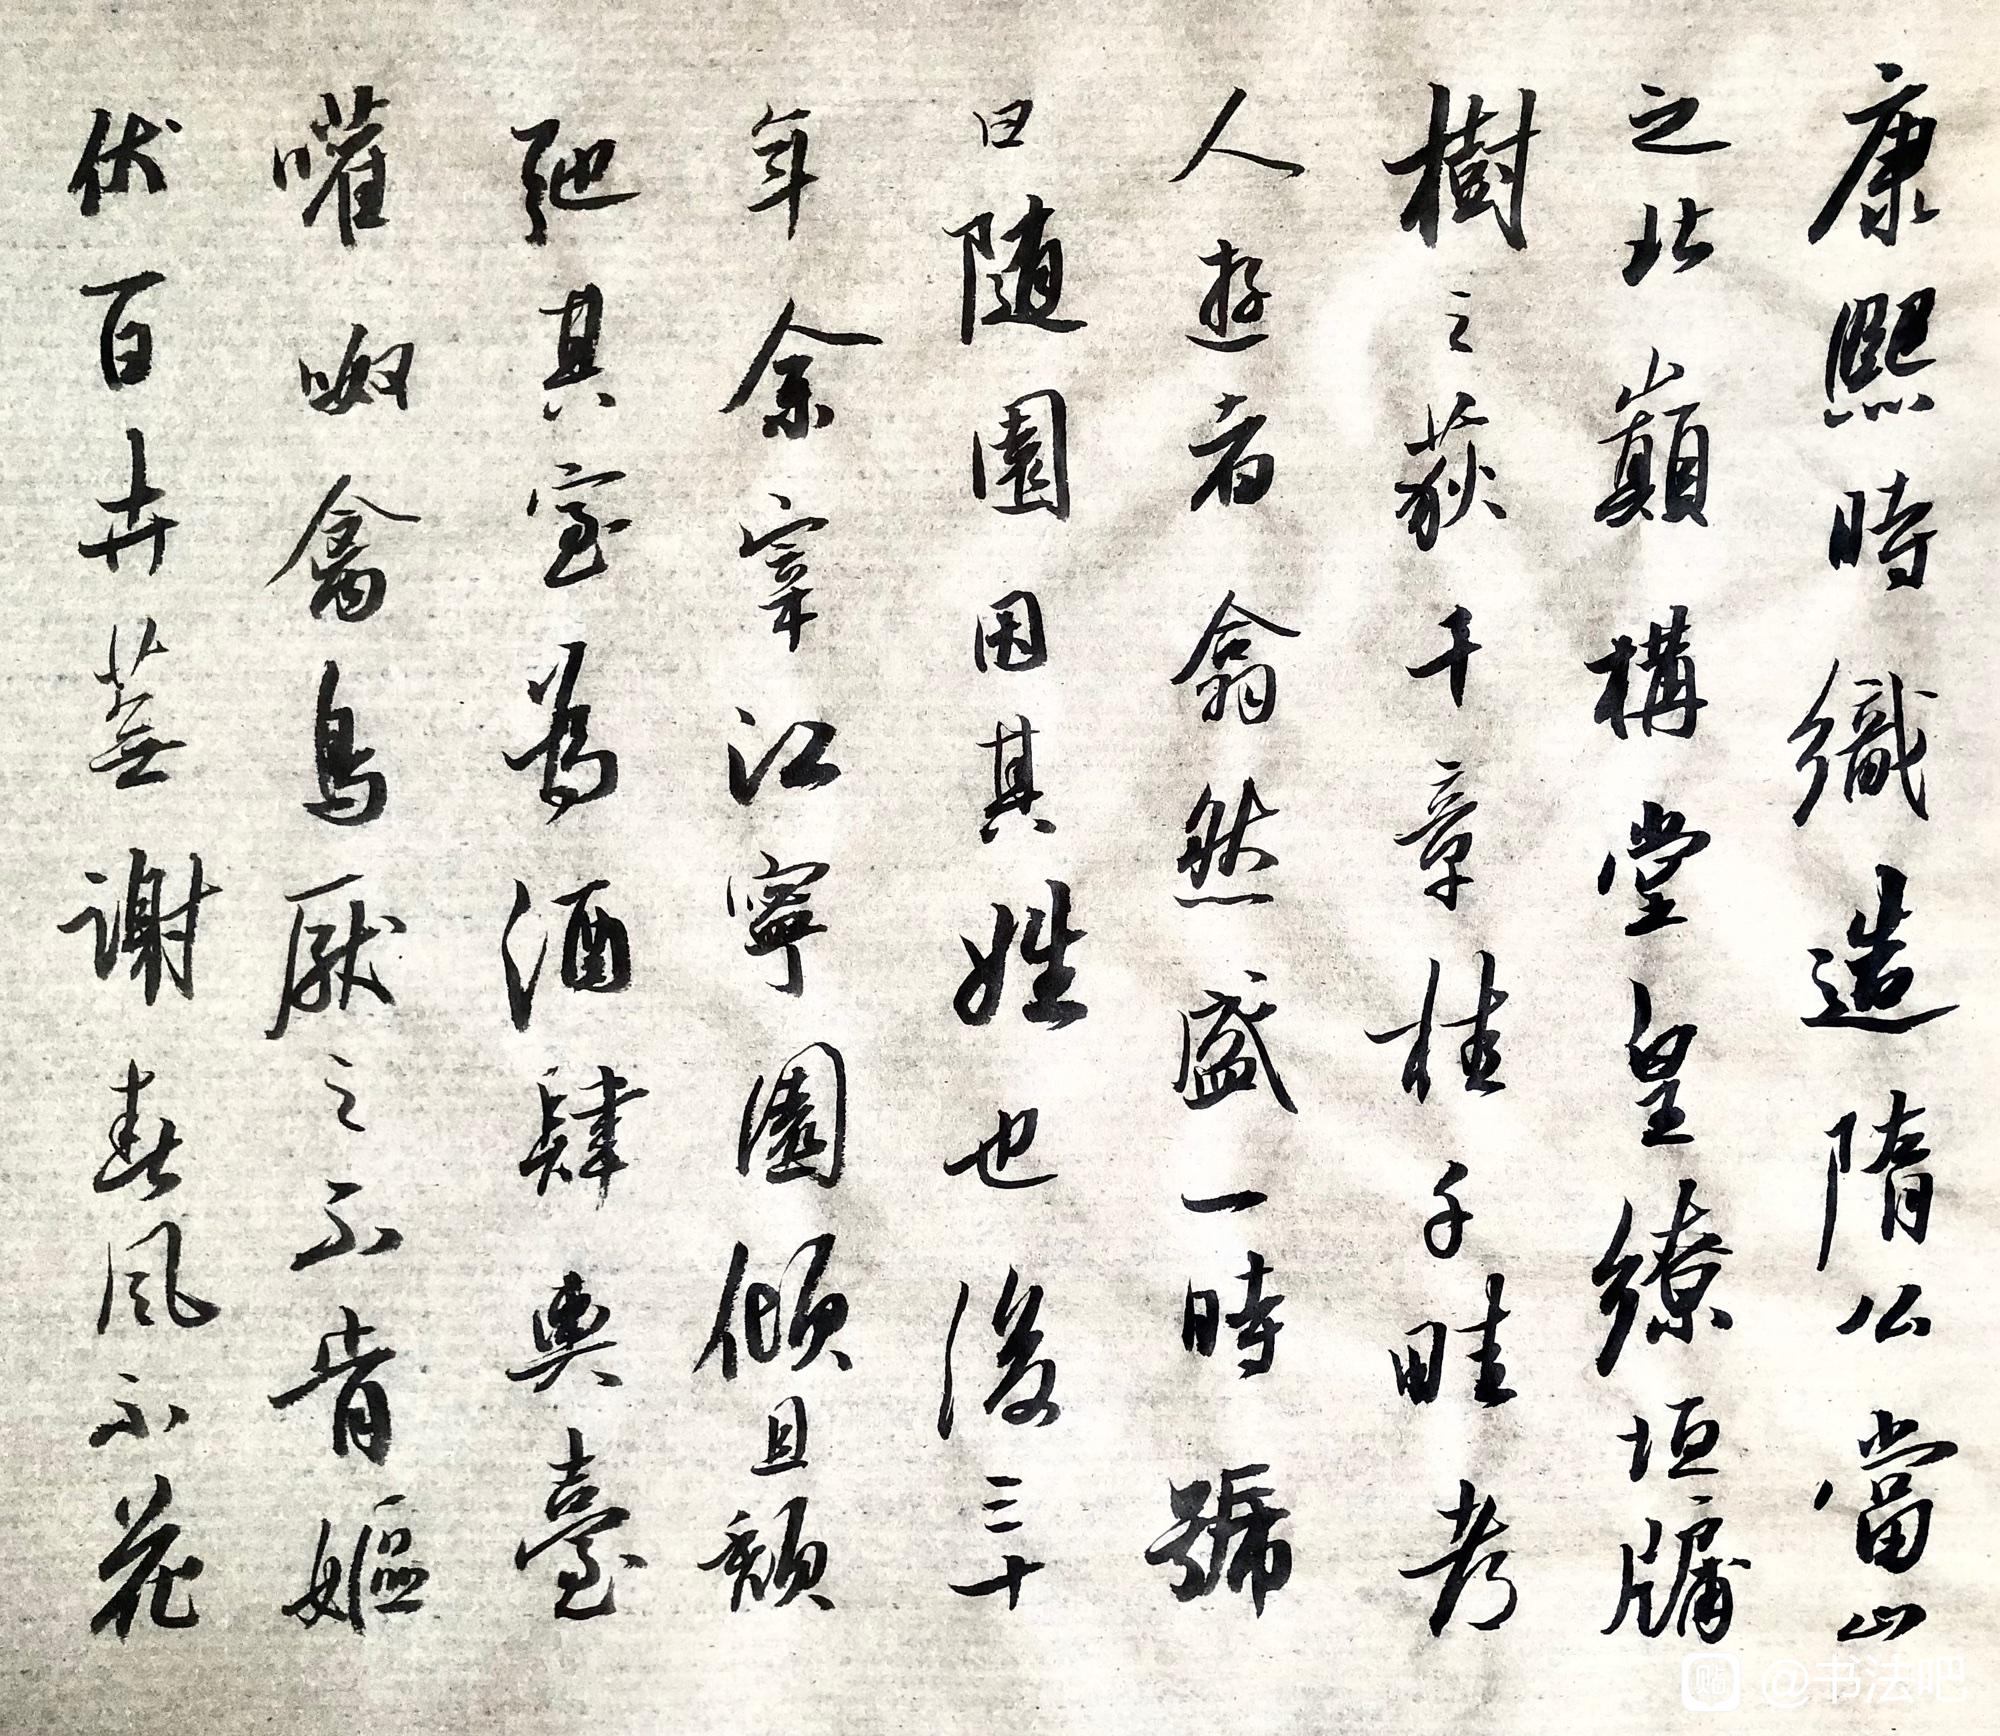 康熙時織造隋公當山
之北巔構堂皇繚垣牖
樹之荻千章桂千畦都
人遊者翕然盛一時號
曰隨園因其姓也後三十
年余宰江寧園傾且頹
弛其室為酒肆輿臺
嚾呶禽鳥厭之不肯嫗
伏百卉蕪謝春風不花
贴 @书法吧